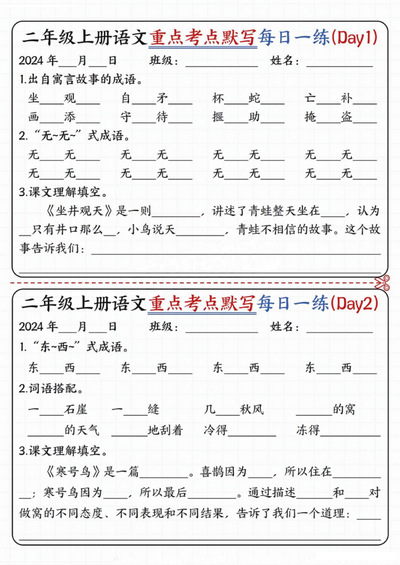 二年级上册语文重点考点默写每日一练(Day1)
2024年___月___日 班级:______ 姓名:________
1.出自寓言故事的成语。
坐___观___ 自___矛___ 杯___蛇___ 亡___补___
画___添___ 守___待___ 揠___助___ 掩___盗___
2.“无~无~”式成语。
无___无___ 无___无___ 无___无___ 无___无___
无___无___ 无___无___ 无___无___ 无___无___
3.课文理解填空。
《坐井观天》是一则________,讲述了青蛙整天坐在____,认为
__只有井口那么__,小鸟说天________,青蛙不相信的故事。这个故
事告诉我们:________________________________
二年级上册语文重点考点默写每日一练(Day2)
2024年___月___日 班级:______ 姓名:________
1.“东~西~”式成语。
东___西___ 东___西___ 东___西___ 东___西___
2.词语搭配。
一____石崖 一____缝 几____秋风 ______的窝
______的天气 ______地刮着 冷得________ 冻得________
3.课文理解填空。
《寒号鸟》是一篇________。喜鹊因为____,所以住在______
__;寒号鸟因为____,所以最后________。通过描述_____和____对
做窝的不同态度、不同表现和不同结果,告诉了我们一个道理:____